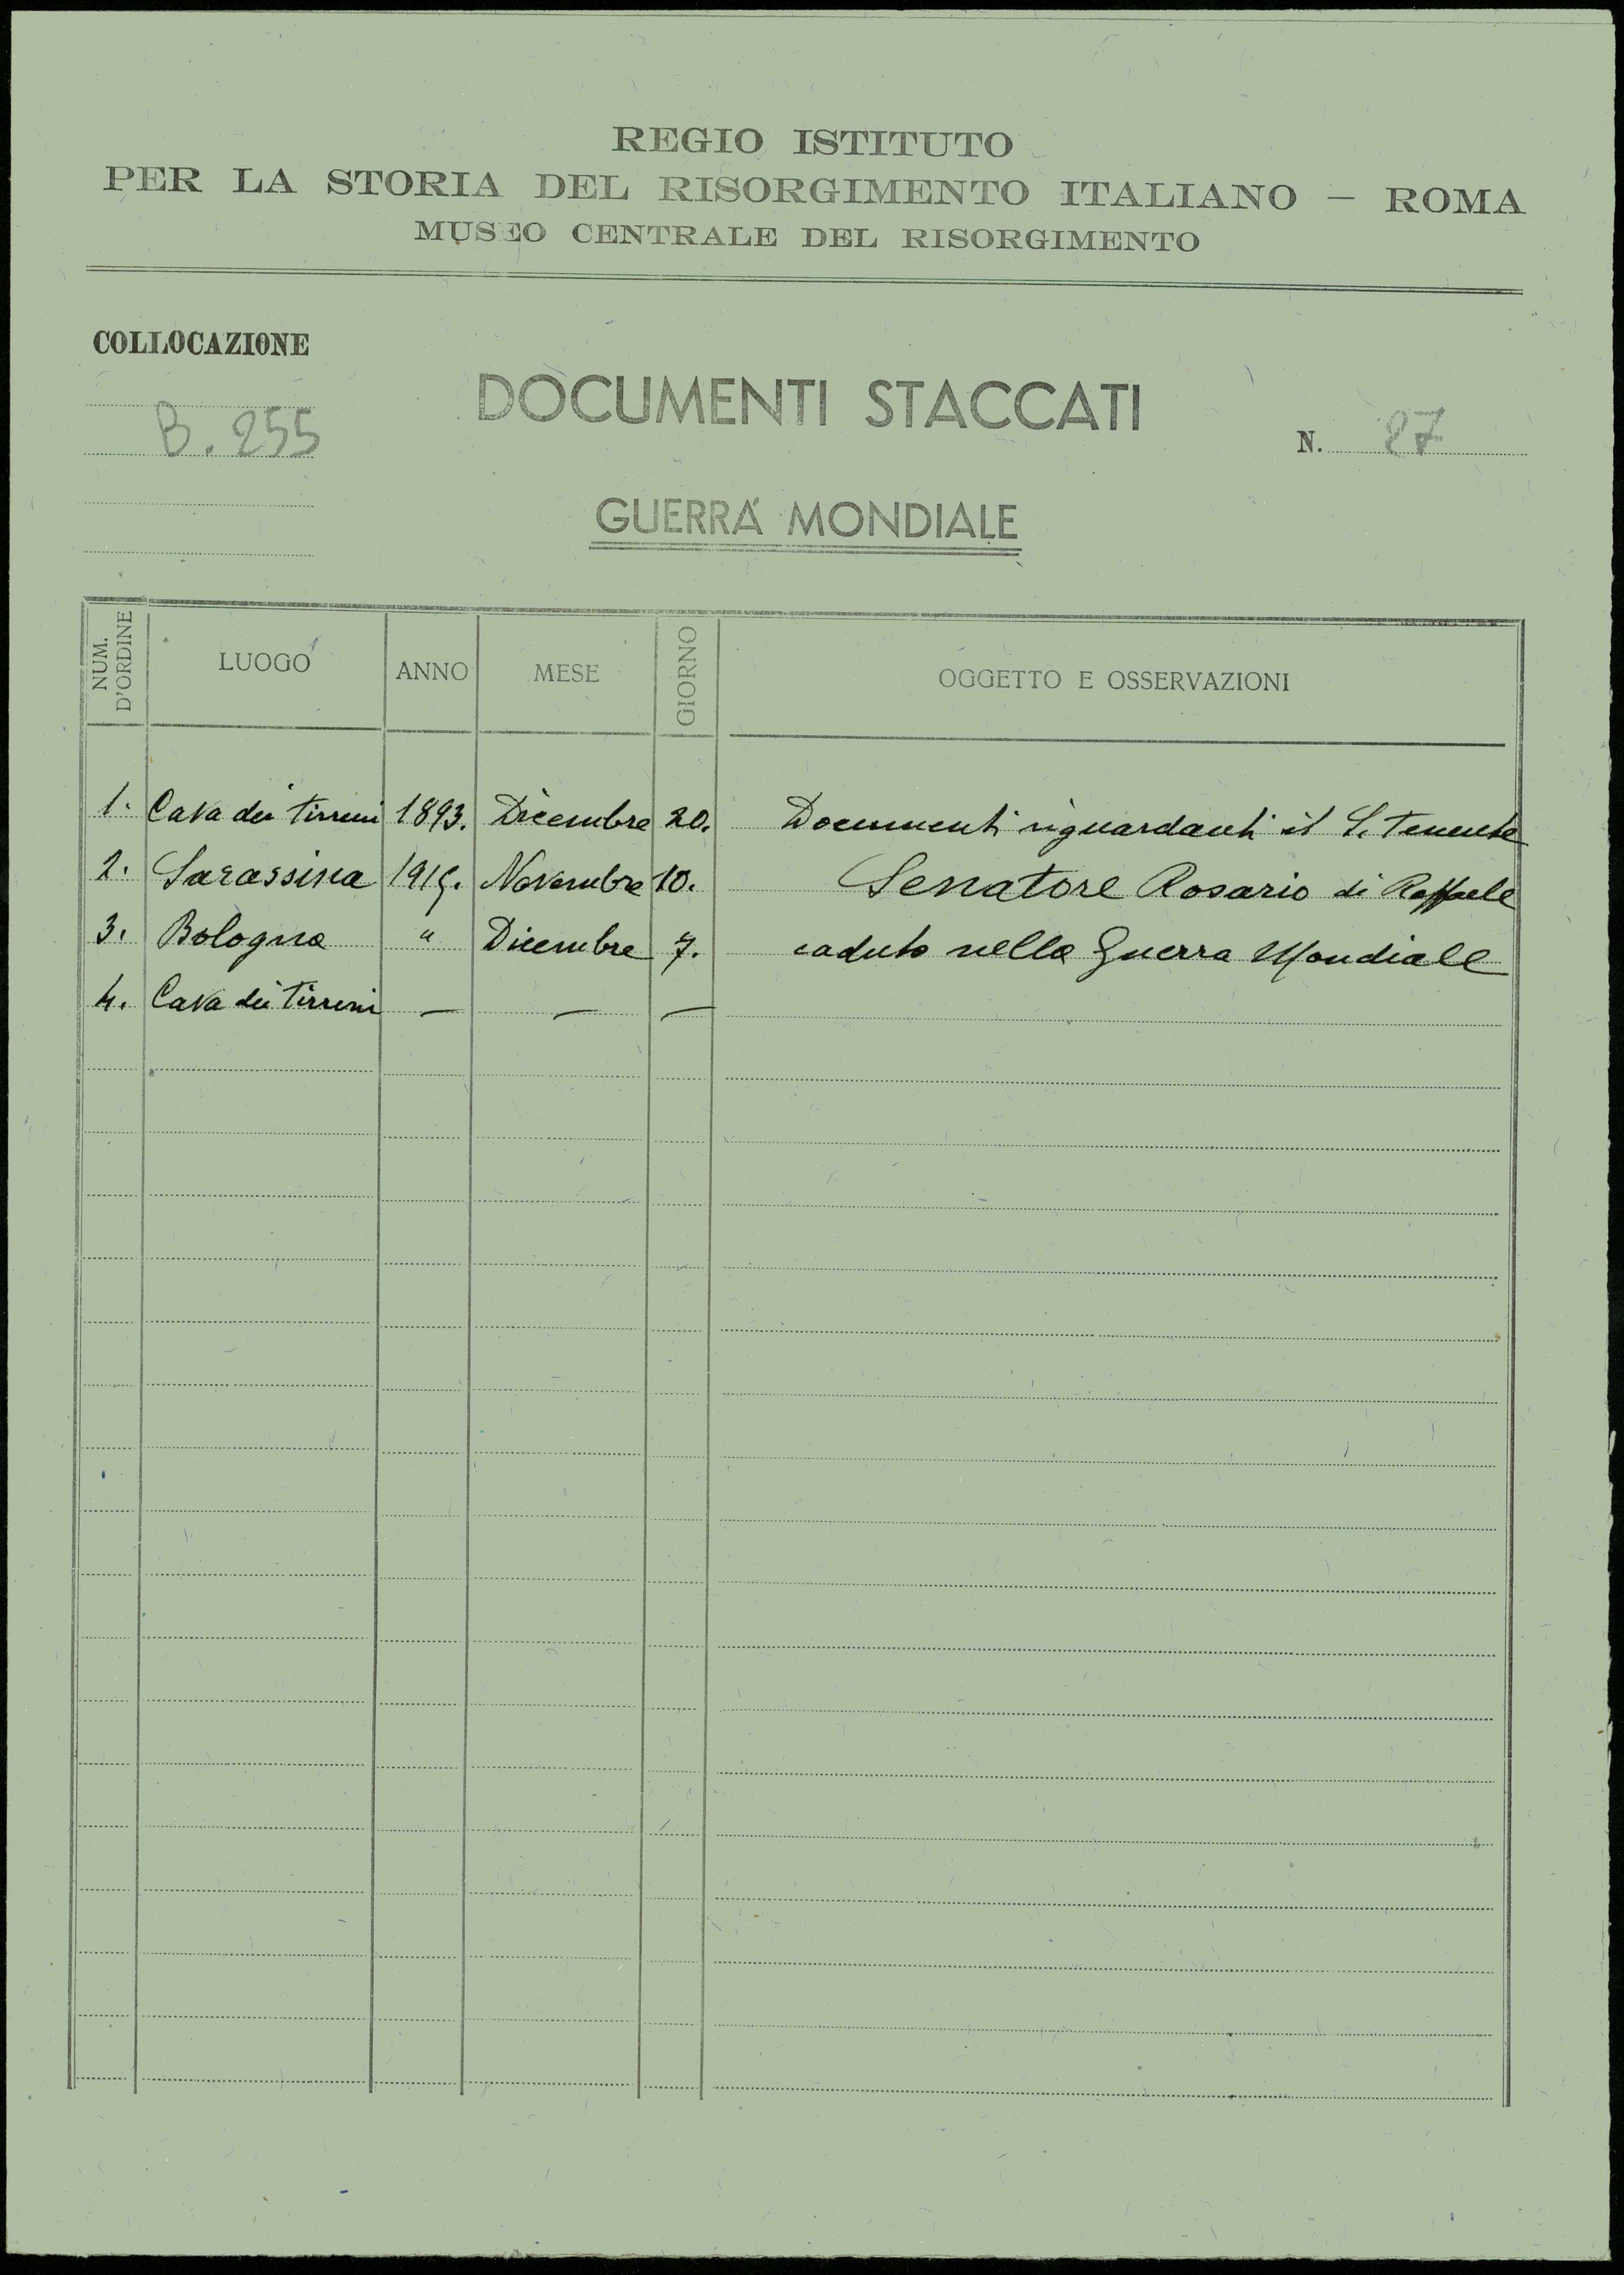 REGIO ISTITUTO
PER LA STORIA DEL RISORGIMENTO ITALIANO — ROMA
MUSEO CENTRALE DEL RISORGIMENTO
COLLOCAZIONE
B. 255
DOCUMENTI STACCATI
N. 27
GUERRA MONDIALE
NUM. D'ORDINE LUOGO ANNO MESE GIORNO OGGETTO E OSSERVAZIONI
1. Cava dei Tirreni 1893. Dicembre 20. Documenti riguardanti il S. Tenente
2. Sarassina 1915. Novembre 10. Senatore Rosario di Raffaele
3. Bologna " Dicembre 7. caduto nella Guerra Mondiale
4. Cava dei Tirreni — — —